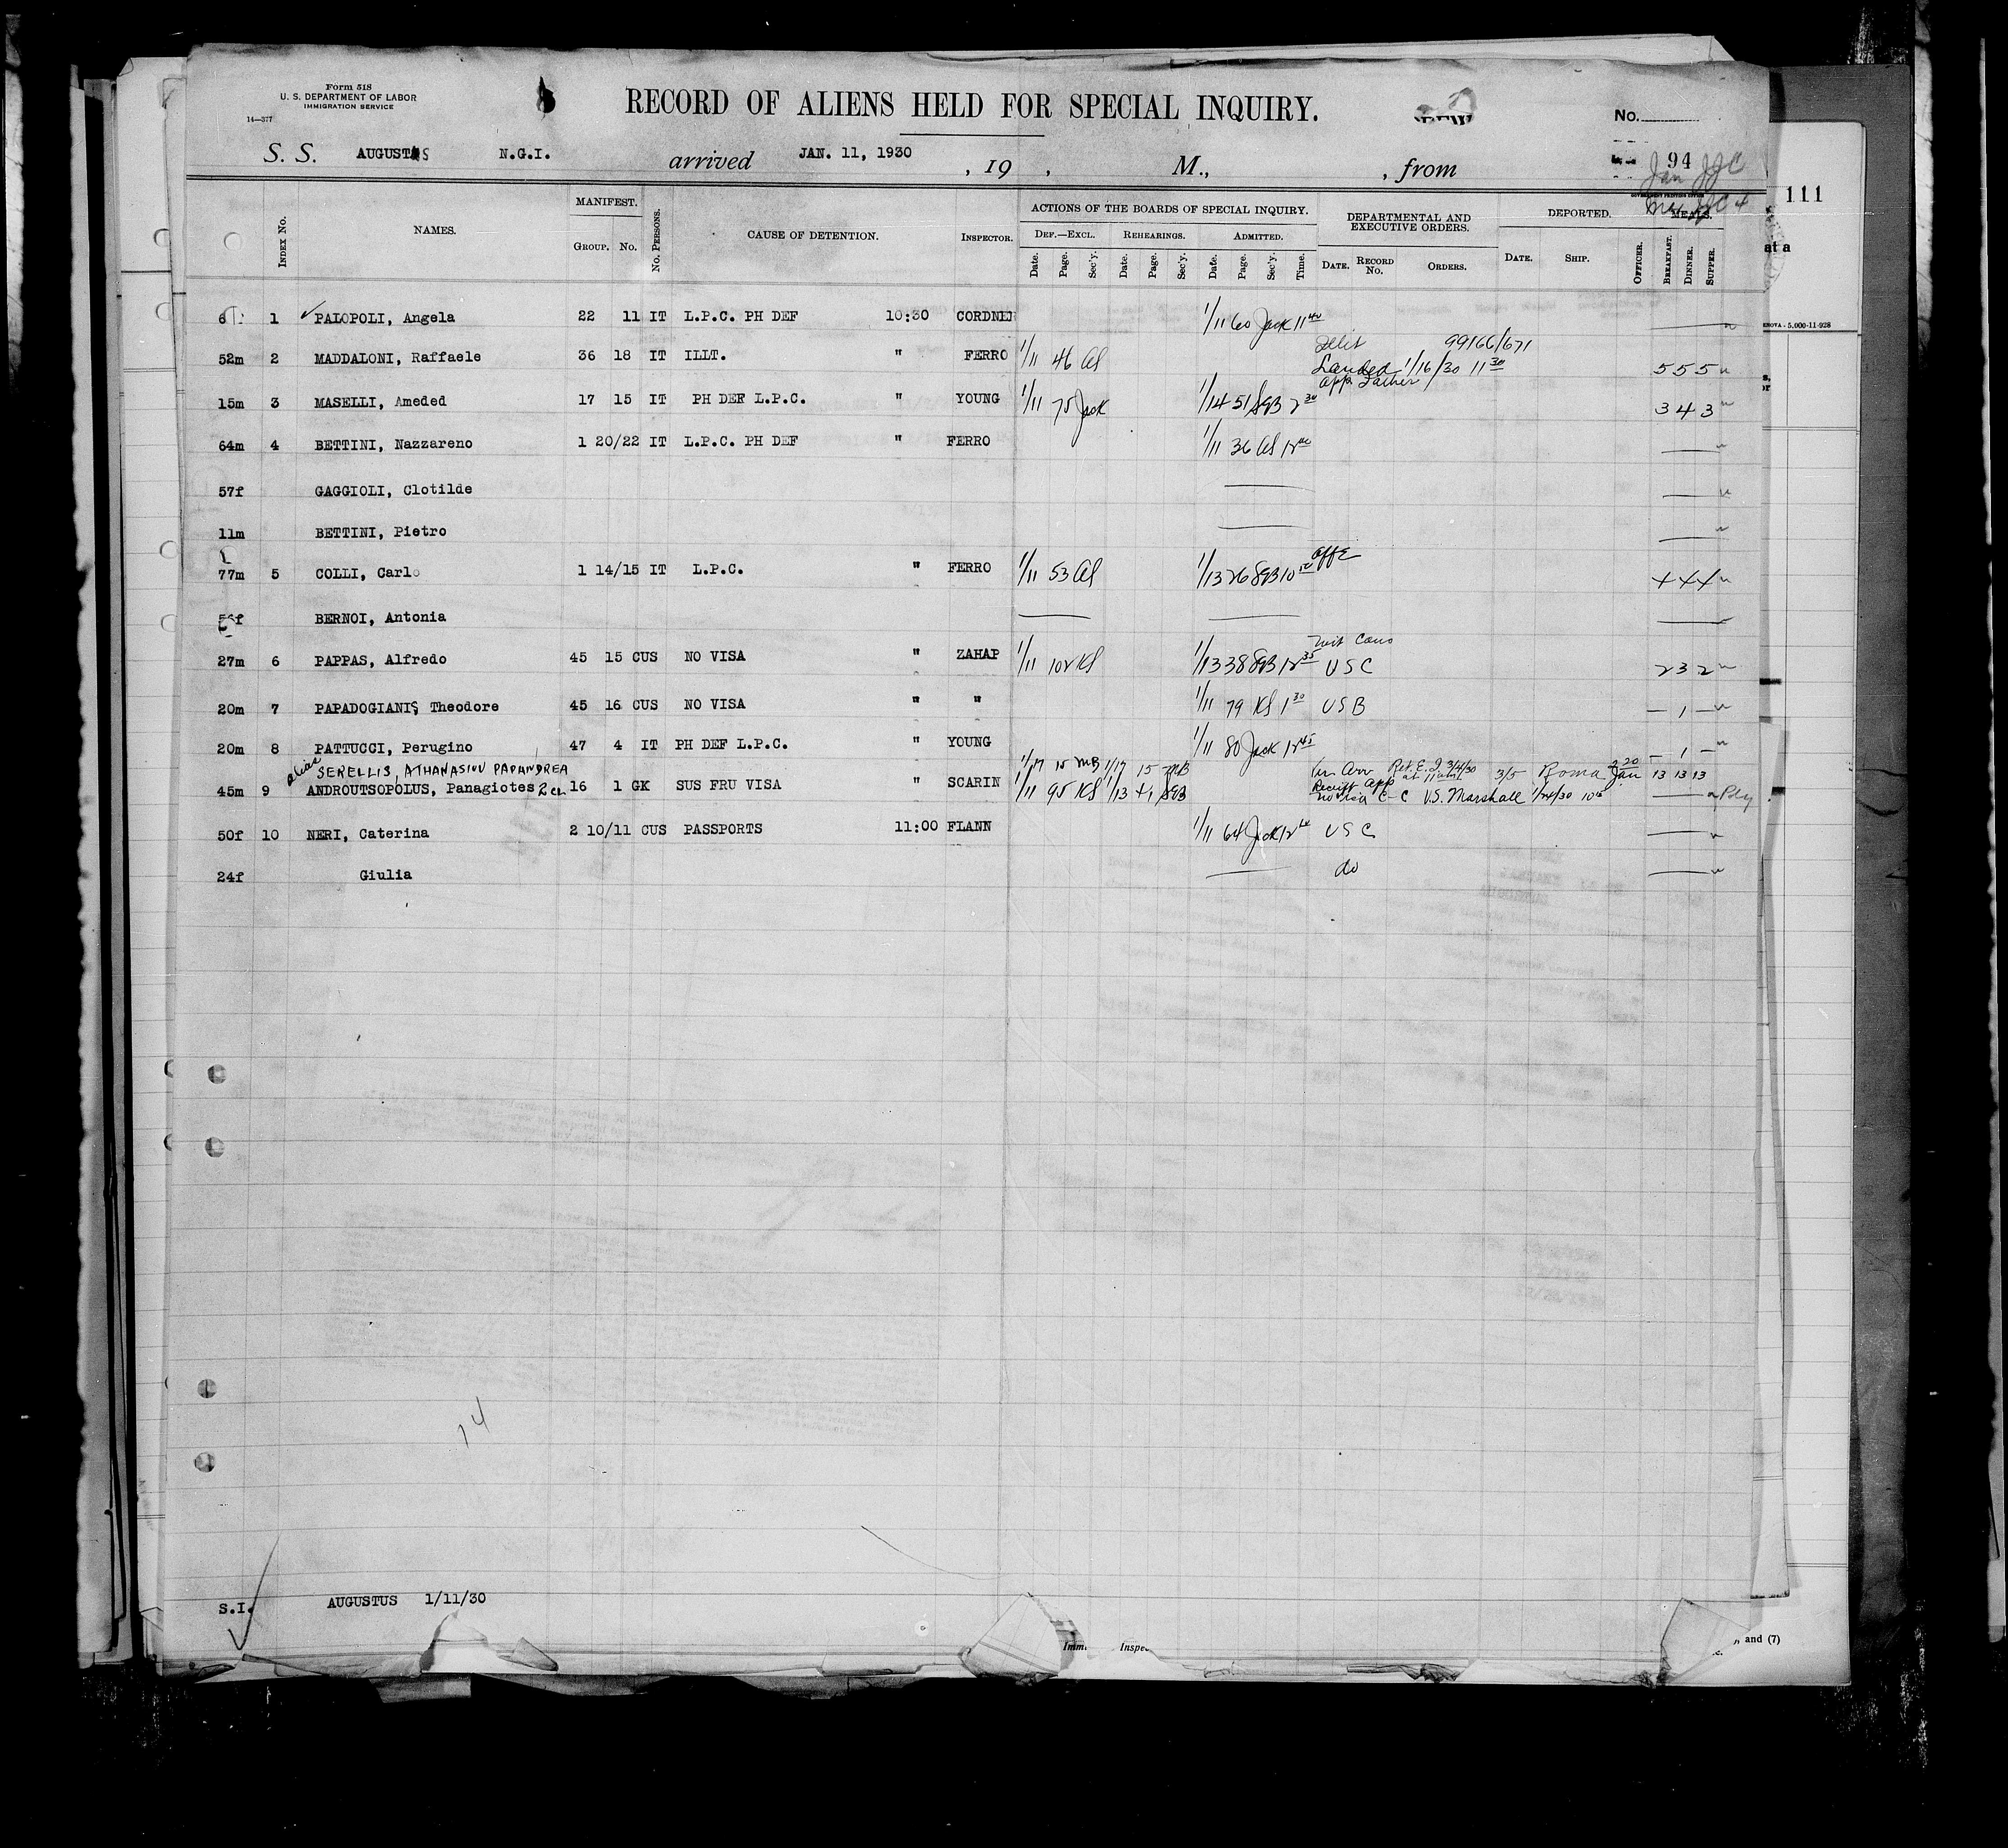 Form 518
U. S. DEPARTMENT OF LABOR
IMMIGRATION SERVICE
14—377
RECORD OF ALIENS HELD FOR SPECIAL INQUIRY.
No.
S. S. AUGUSTUS N.G.I. arrived JAN. 11, 1930 , 19 , M., , from
94
Jan JJC
111
INDEX No. NAMES. MANIFEST. GROUP. No. No. PERSONS. CAUSE OF DETENTION. INSPECTOR. ACTIONS OF THE BOARDS OF SPECIAL INQUIRY. DEPARTMENTAL AND EXECUTIVE ORDERS. DEPORTED. MEALS.
DEF.—EXCL. REHEARINGS. ADMITTED.
Date. Page. Sec'y. Date. Page. Sec'y. Date. Page. Sec'y. Time. DATE. RECORD No. ORDERS. DATE. SHIP. OFFICER. BREAKFAST. DINNER. SUPPER.
1 PALOPOLI, Angela 22 11 IT L.P.C. PH DEF 10:30 CORDNER 1/11 60 Jack 11 40
99166/671
52m 2 MADDALONI, Raffaele 36 18 IT ILLT. " FERRO 1/11 46 Al Landed 1/16/30 11 30 5 5 5
app Father
15m 3 MASELLI, Ameded 17 15 IT PH DEF L.P.C. " YOUNG 1/11 75 Jack 1/14 51 SGB 2 30 3 4 3
64m 4 BETTINI, Nazzareno 1 20/22 IT L.P.C. PH DEF " FERRO 1/11 36 Al 12 00
57f GAGGIOLI, Clotilde
11m BETTINI, Pietro
77m 5 COLLI, Carlo 1 14/15 IT L.P.C. " FERRO 1/11 53 Al 1/13 26 SGB 10 4 4 4
BERNOI, Antonia
27m 6 PAPPAS, Alfredo 45 15 CUS NO VISA " ZAHAP 1/11 102 KS 1/13 38 SGB 12 35 USC 2 3 2
20m 7 PAPADOGIANIS Theodore 45 16 CUS NO VISA " " 1/11 79 KS 1 30 USB — 1 —
20m 8 PATTUCCI, Perugino 47 4 IT PH DEF L.P.C. " YOUNG 1/11 80 Jack 12 45 — 1 —
alias SERELLIS, ATHANASIOU PAPANDREA 1/17 15 MB 1/17 15 MB Ret. E. I 3/4/30 3/5 Roma 2 20 Jan 13 13 13
45m 9 ANDROUTSOPOLUS, Panagiotes 2 ch 16 1 GK SUS FRU VISA " SCARIN 1/11 95 KS 1/13 41 SGB C-C U.S. Marshall 1/24/30
50f 10 NERI, Caterina 2 10/11 CUS PASSPORTS 11:00 FLANN 1/11 64 Jack 12 USC
24f Giulia do
14
S.I. AUGUSTUS 1/11/30
and (7)